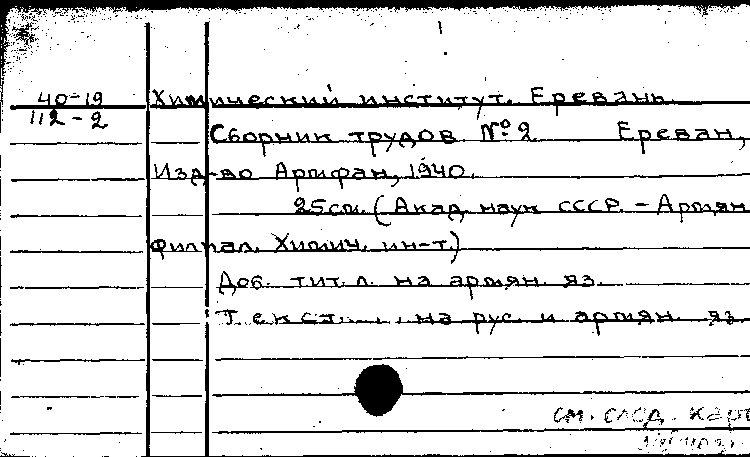 40-19
112-2
Химический институт. Ереван.
Сборник трудов №2 Ереван,
Изд-во Армфан, 1940.
25см. (Акад. наук СССР. - Армян
филиал. Химич. ин-т.)
Доб. тит. л. на армян. яз.
Текст... на рус. и армян. яз.
см. след. карт